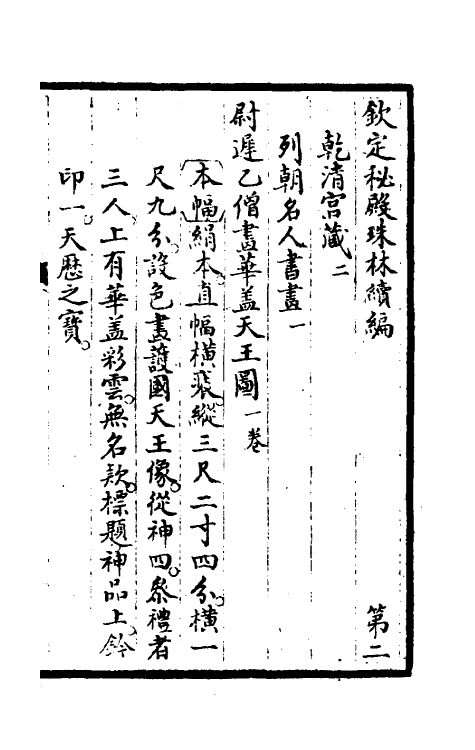 欽定秘殿珠林續編 第二
乾清宮藏二
列朝名人書畫一
尉遲乙僧畫華盖天王圖一卷
本幅絹本直幅橫裝縱三尺二寸四分橫一
尺九分設色畫護國天王像從神四叅禮者
三人上有華盖彩雲無名欵標題神品上鈐
印一天歷之寶